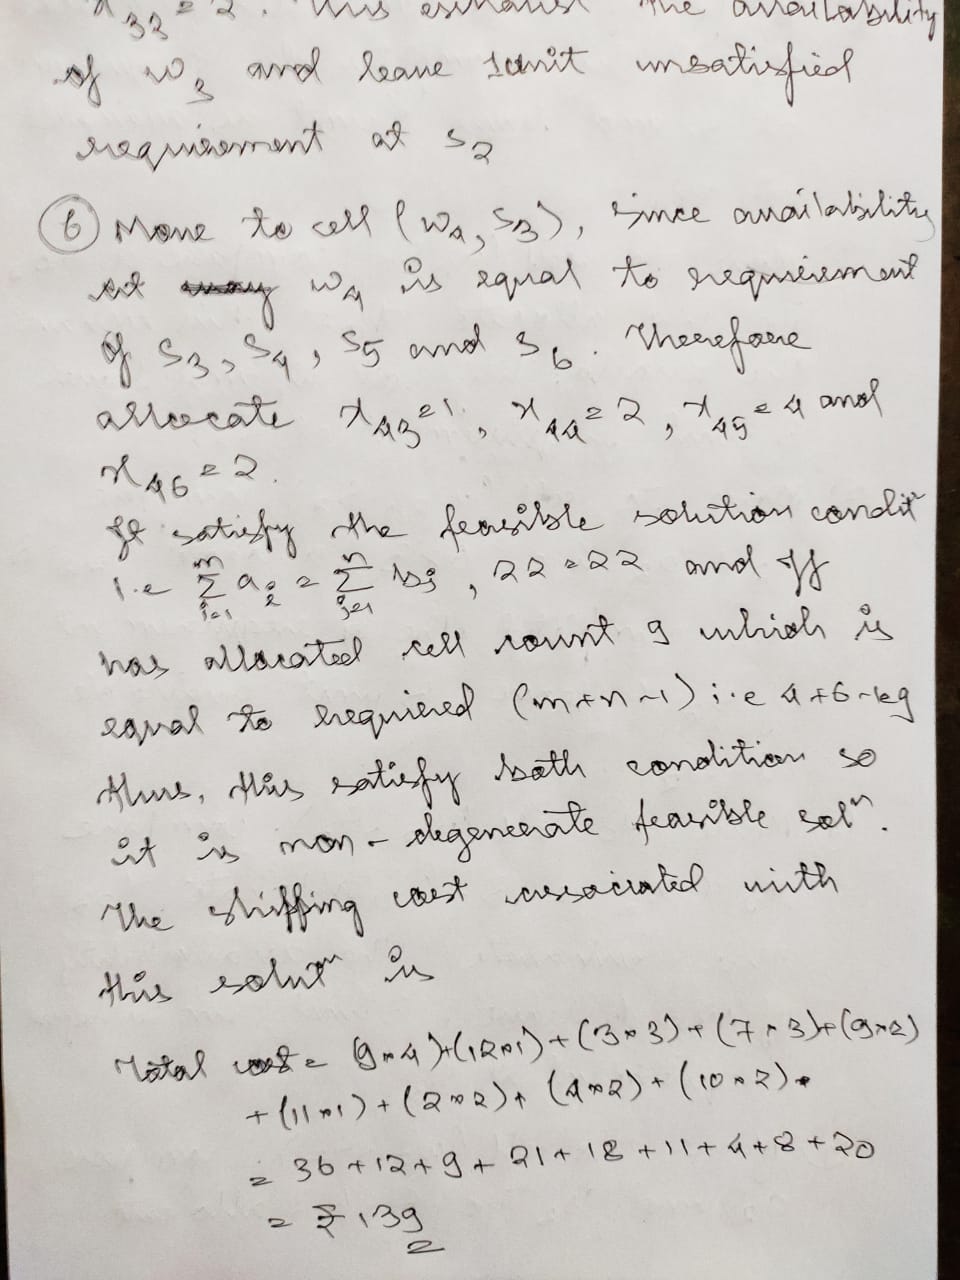 x₃₂ = 2. This exhaust the availability
of w₃ and leave 1unit unsatisfied
requirement at s₂
⑥ Move to cell (w₄, s₃), since availability
at w₄ is equal to requirement
of s₃, s₄, s₅ and s₆. Therefore
allocate x₄₃=1, x₄₄=2, x₄₅=4 and
x₄₆=2.
It satisfy the feasible solution conditⁿ
i.e m∑i=1 aᵢ = n∑j=1 bj, 22=22 and If
has allocated cell count 9 which is
equal to required (m+n-1) i.e 4+6-1=9
thus, this satisfy both condition so
it is non-degenerate feasible solⁿ.
The shiffing cost associated with
this solutⁿ is
Total cost = (9×4)+(12×1)+(3×3)+(7×3)+(9×2)
+(11×1)+(2×2)+(4×2)+(10×2)
= 36+12+9+21+18+11+4+8+20
= ₹139